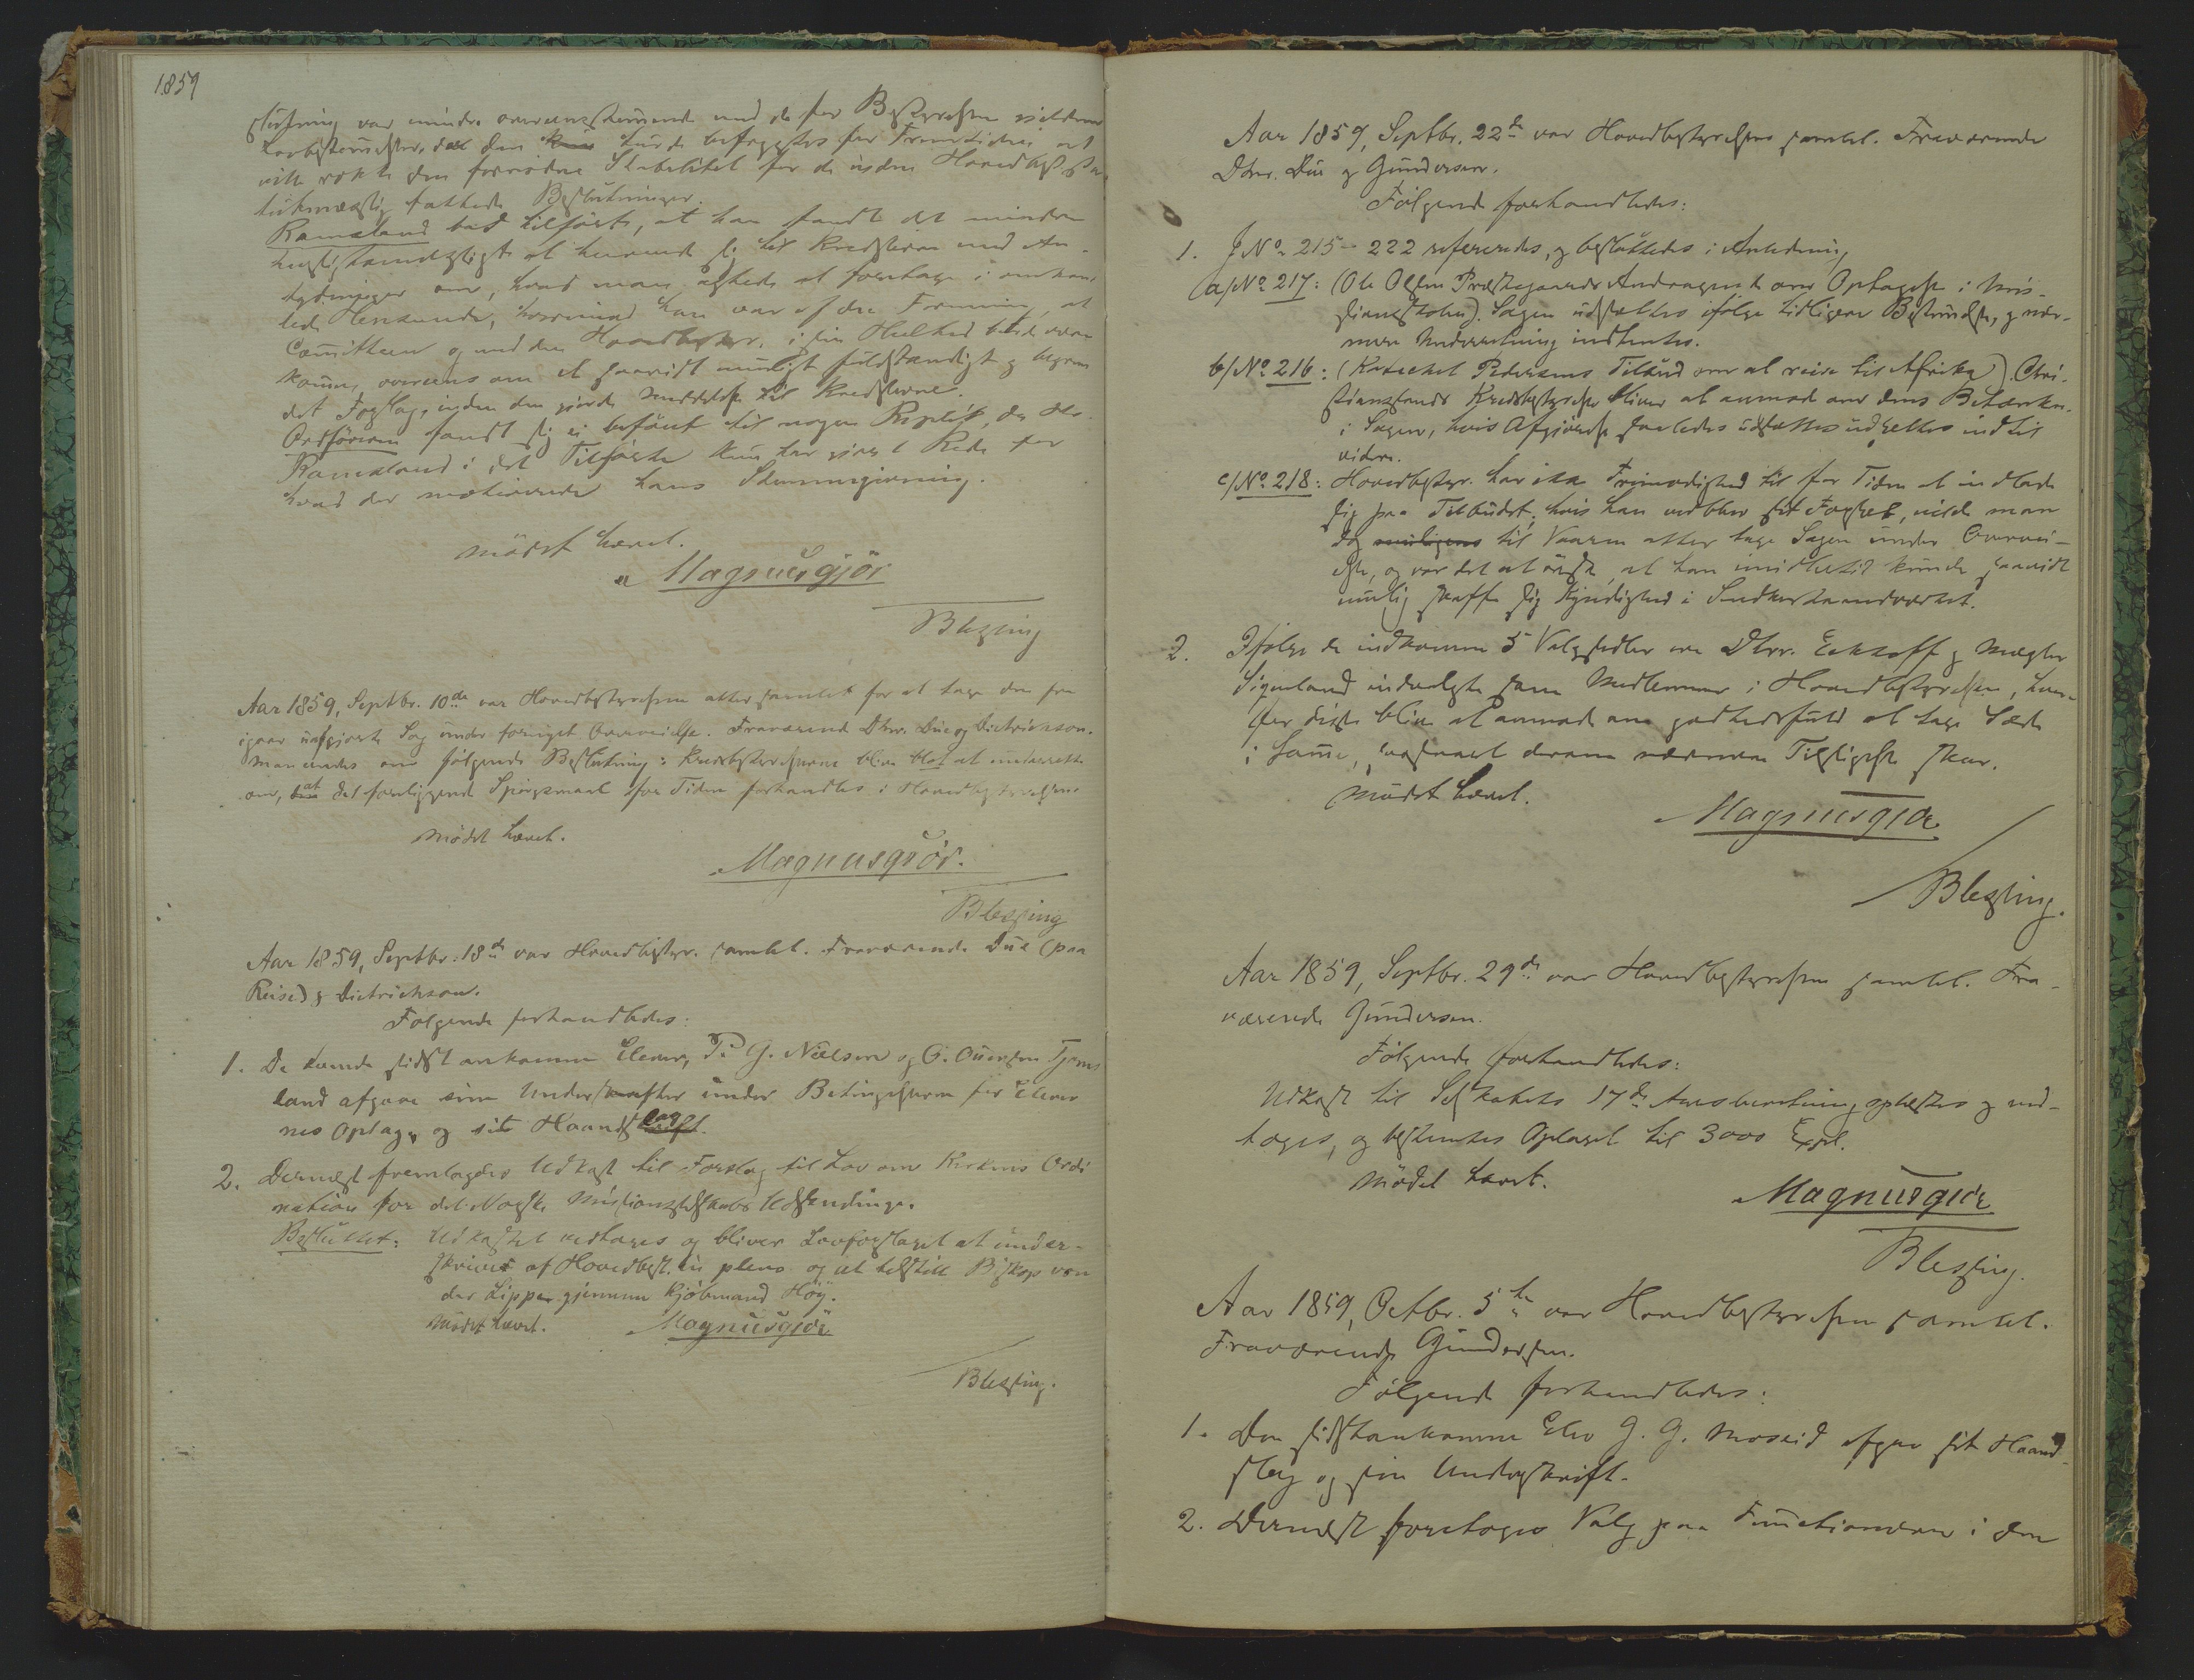 1859
slutning var mindre overensstemmende med de for Bestyrelsen gjeldende
Lovbestemmelser, det den kun turde befrygtes for Fremtiden at
ville rokke den fornødne Stabilitet for de inden Hovedbest.
fattede Beslutninger.
Ramsland bad tilført, at han fandt det mindre
at henvende sig til Kredsene med An-
tydninger om, hvad man agtede at foretage i omhand-
lede Henseende, hvorimod han var af den Formening, at
Comitteen og med den Hovedbestyr. i sin Helhed burde være
kommen overeens om et saavidt muligt fuldstændigt og begrun-
det Forslag, inden den gjorde Meddelelse til Kredsene.
Ordføreren fandt sig ei beføiet til nogen Replik, da Hr.
Ramsland i det Tilførte kun har gjort Rede for
hvad der motiverede hans Stemmegivning.
Mødet hævet.
Magnus Gjør
Blessing
Aar 1859, Septbr. 10de var Hovedbestyrelsen atter samlet for at tage den fra
igaar uafgjorte Sag under fornyet Overveielse. Fraværende Dhrr. Due og Dietrichson.
Man enedes om følgende Beslutning: Kredsbestyrelserne blive blot at underrette
om, at det foreliggende Spørgsmaal for Tiden forhandles i Hovedbestyrelsen.
Mødet hævet.
Magnus Gjør.
Blessing
Aar 1859, Septbr. 18de var Hovedbestyr. samlet. Fraværende Due (paa
Reise) og Dietrichson.
Følgende forhandledes:
1. De tvende sidst ankomne Elever, P. G. Nielsen og G. Gundersen Tjoms-
land afgave sine Underskrifter under Betingelserne for Elever-
nes Optagelse og sit Haandslag.
2. Dernæst fremlagdes Udkast til Forslag til Lov om Kirkens Ordi-
nation for det Norske Missionsselskabs Udsendinge.
Besluttet: Udkastet vedtages og bliver Lovforslaget at under-
skrives af Hovedbest. in pleno og at tilstille Biskop von
der Lippe gjennem Kjøbmand Høy.
Mødet hævet.
Magnus Gjør
Blessing.
Aar 1859, Septbr. 22de var Hovedbestyrelsen samlet. Fraværende
Dhrr. Due og Gundersen.
Følgende forhandledes:
1. J No 215-222 refereredes, og besluttedes i Anledning
a/No 217: (Ole Olsen Præstegaards Andragende om Optagelse i Mis-
sionsskolen). Sagen udsættes ifølge tidligere Bestemmelse, og nær-
mere Underretning indhentes.
b/No 216: (Katechet Pedersens Tilbud om at reise til Afrika). Chri-
stianssands Kredsbestyrelse bliver at anmode om dens Betænkn.
i Sagen, hvis Afgjørelse saaledes udsættes indtil
videre.
c/No 218: Hovedbestyr. har ikke Frimodighed til for Tiden at indlade
sig paa Tilbudet; hvis han vedbliver sit Forsæt, vilde man
dog muligens til Vaaren atter tage Sagen under Overvei-
else, og var det at ønske, at han imidlertid kunde saavidt
mulig skaffe sig Kyndighed i Snedkerhaandværket.
2. Ifølge de indkomne 5 Valgsedler ere Dhrr. Eckhoff og Mægler
Sigvaland indvalgte som Medlemmer i Hovedbestyrelsen, hvor-
for disse blive at anmode om godhedsfuld at tage Sæde
i samme, saasnart derom nærmere Tilsigelse sker.
Mødet hævet.
Magnus Gjør
Blessing.
Aar 1859, Septbr. 29de var Hovedbestyrelsen samlet. Fra-
værende Gundersen.
Følgende forhandledes:
Udkast til Selskabets 17de Aarsberetning oplæstes og ved-
toges, og bestemtes Oplaget til 3000 Expl.
Mødet hævet.
Magnus Gjør
Blessing.
Aar 1859, Octbr. 5te var Hovedbestyrelsen samlet.
Fraværende Gundersen.
Følgende forhandledes:
1. Den sidstankomne Elev G. G. Moseid afgav sit Haand-
slag og sin Underskrift.
2. Dernæst foretoges Valg paa Functionærer i den